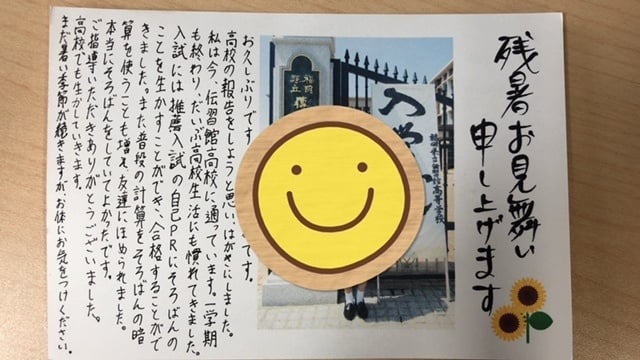 残暑お見舞い
申し上げます
福岡
県立
入学
福岡県立伝習館高等学校
お久しぶりです。
高校の報告をしようと思い、はがきにしました。
私は今、伝習館高校に通っています。一学期
も終わり、だいぶ高校生活にも慣れてきました。
入試には推薦入試の自己PRにそろばんの
ことを生かすことができ、合格することがで
きました。また普段の計算をそろばんの暗
算を使うことも増え友達にほめられました。
本当にそろばんをしていてよかったです。
ご指導いただきありがとうございました。
高校でも生かしていきます。
まだ暑い季節が続きますが、お体にお気をつけください。